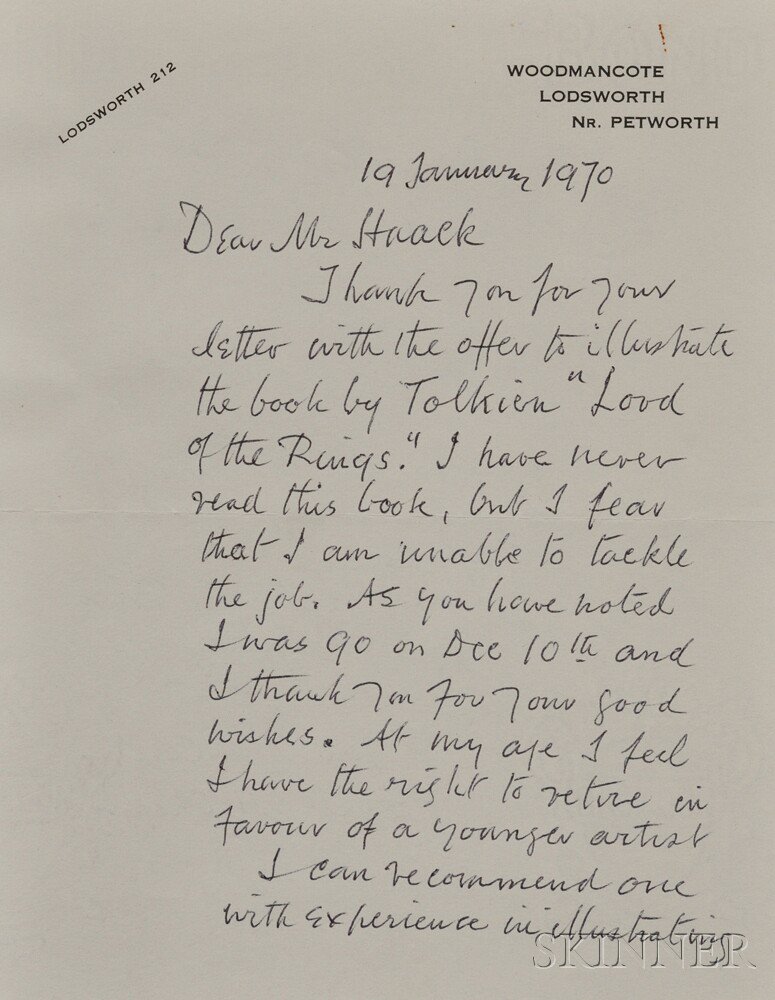 LODSWORTH 212
WOODMANCOTE
LODSWORTH
NR. PETWORTH
19 January 1970
Dear Mr Haack
Thank you for your
letter with the offer to illustrate
the book by Tolkien "Lord
of the Rings." I have never
read this book, but I fear
that I am unable to tackle
the job. As you have noted
I was 90 on Dec 10th and
I thank you for your good
wishes. At my age I feel
I have the right to retire in
favour of a younger artist
I can recommend one
with experience in illustrating
SKINNER